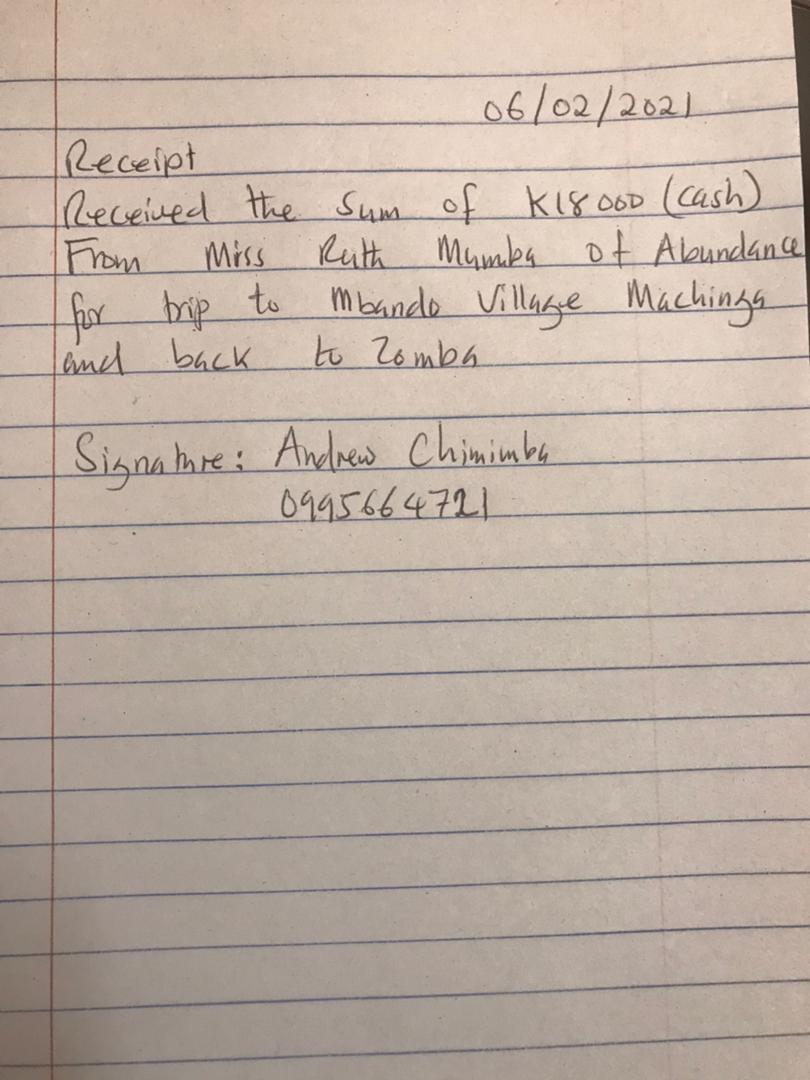 06/02/2021
Receipt
Received the sum of K18000 (cash)
From Miss Ruth Mumba of Abundance
for trip to Mbando Village Machinga
and back to Zomba
Signature: Andrew Chimimba
0995664721